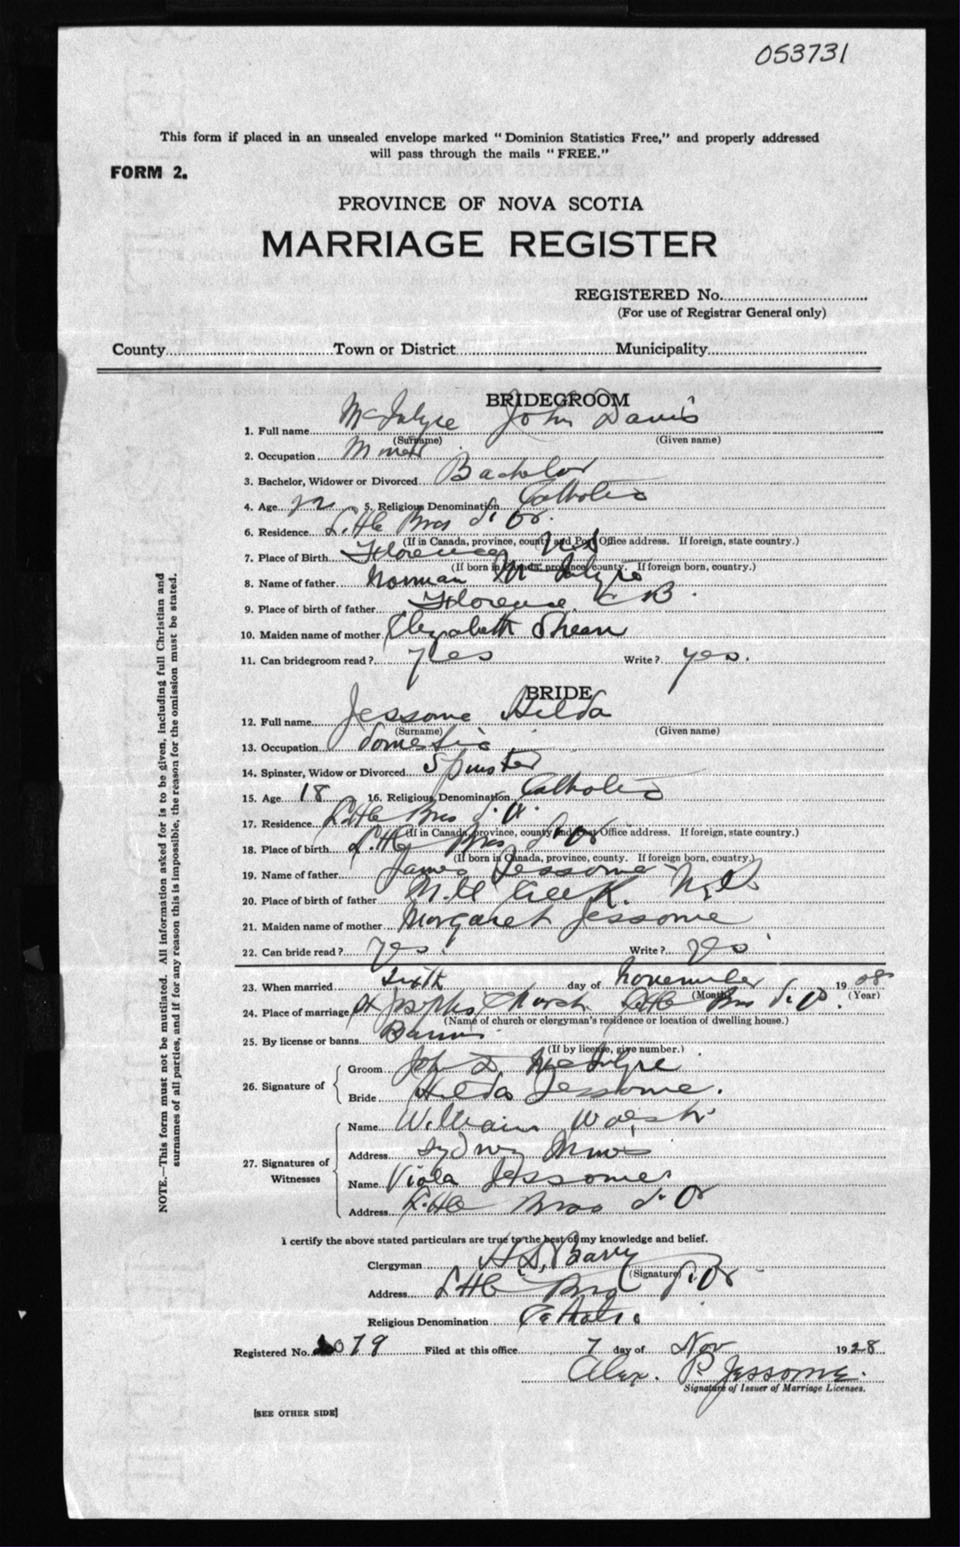 053731
This form if placed in an unsealed envelope marked "Dominion Statistics Free," and properly addressed
will pass through the mails "FREE."
FORM 2.
PROVINCE OF NOVA SCOTIA
MARRIAGE REGISTER
REGISTERED No.
(For use of Registrar General only)
County Town or District Municipality
BRIDEGROOM
1. Full name McIntyre John Davis
(Surname) (Given name)
2. Occupation Miner
3. Bachelor, Widower or Divorced Bachelor
4. Age 22 5. Religious Denomination Catholic
6. Residence Little Bras d'Or
(If in Canada, province, county and Post Office address. If foreign, state country.)
7. Place of Birth Florence N.S
(If born in Canada, province, county. If foreign born, country.)
8. Name of father Norman McIntyre
9. Place of birth of father Florence C B.
10. Maiden name of mother Elizabeth Shean
11. Can bridegroom read? Yes Write? yes.
BRIDE
12. Full name Jessome Hilda
(Surname) (Given name)
13. Occupation domestic
14. Spinster, Widow or Divorced Spinster
15. Age 18 16. Religious Denomination Catholic
17. Residence Little Bras d'Or
(If in Canada, province, county and Post Office address. If foreign, state country.)
18. Place of birth Little Bras d'Or
(If born in Canada, province, county. If foreign born, country.)
19. Name of father James Jessome
20. Place of birth of father Mill Creek. N.S
21. Maiden name of mother Margaret Jessome
22. Can bride read? Yes Write? Yes
23. When married Sixth day of November 19
(Month) (Year)
24. Place of marriage St Josephs Church Little Bras d'Or
(Name of church or clergyman's residence or location of dwelling house.)
25. By license or banns Banns
(If by license, give number.)
26. Signature of
Groom John D McIntyre
Bride Hilda Jessome.
27. Signatures of Witnesses
Name William Walsh
Address Sydney Mines
Name Viola Jessome
Address Little Bras d'Or
I certify the above stated particulars are true to the best of my knowledge and belief.
Clergyman Barry
(Signature)
Address Little Bras d'Or
Religious Denomination Catholic
Registered No. 079 Filed at this office 7 day of Nov 1928
Alex. P. Jessome.
Signature of Issuer of Marriage Licenses.
[SEE OTHER SIDE]
NOTE.—This form must not be mutilated. All information asked for is to be given, including full Christian and
surnames of all parties, and if for any reason this is impossible, the reason for the omission must be stated.